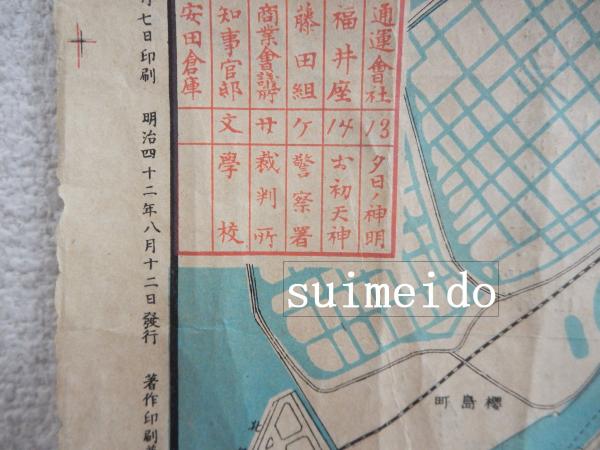 通運會社
13
夕日ノ神明
福井座
14
お初天神
藤田組
ケ
警察署
商業會議所
サ
裁判所
知事官邸
文
學校
安田倉庫
月七日印刷
明治四十二年八月十二日發行
著作印刷
suimeido
町島櫻
北